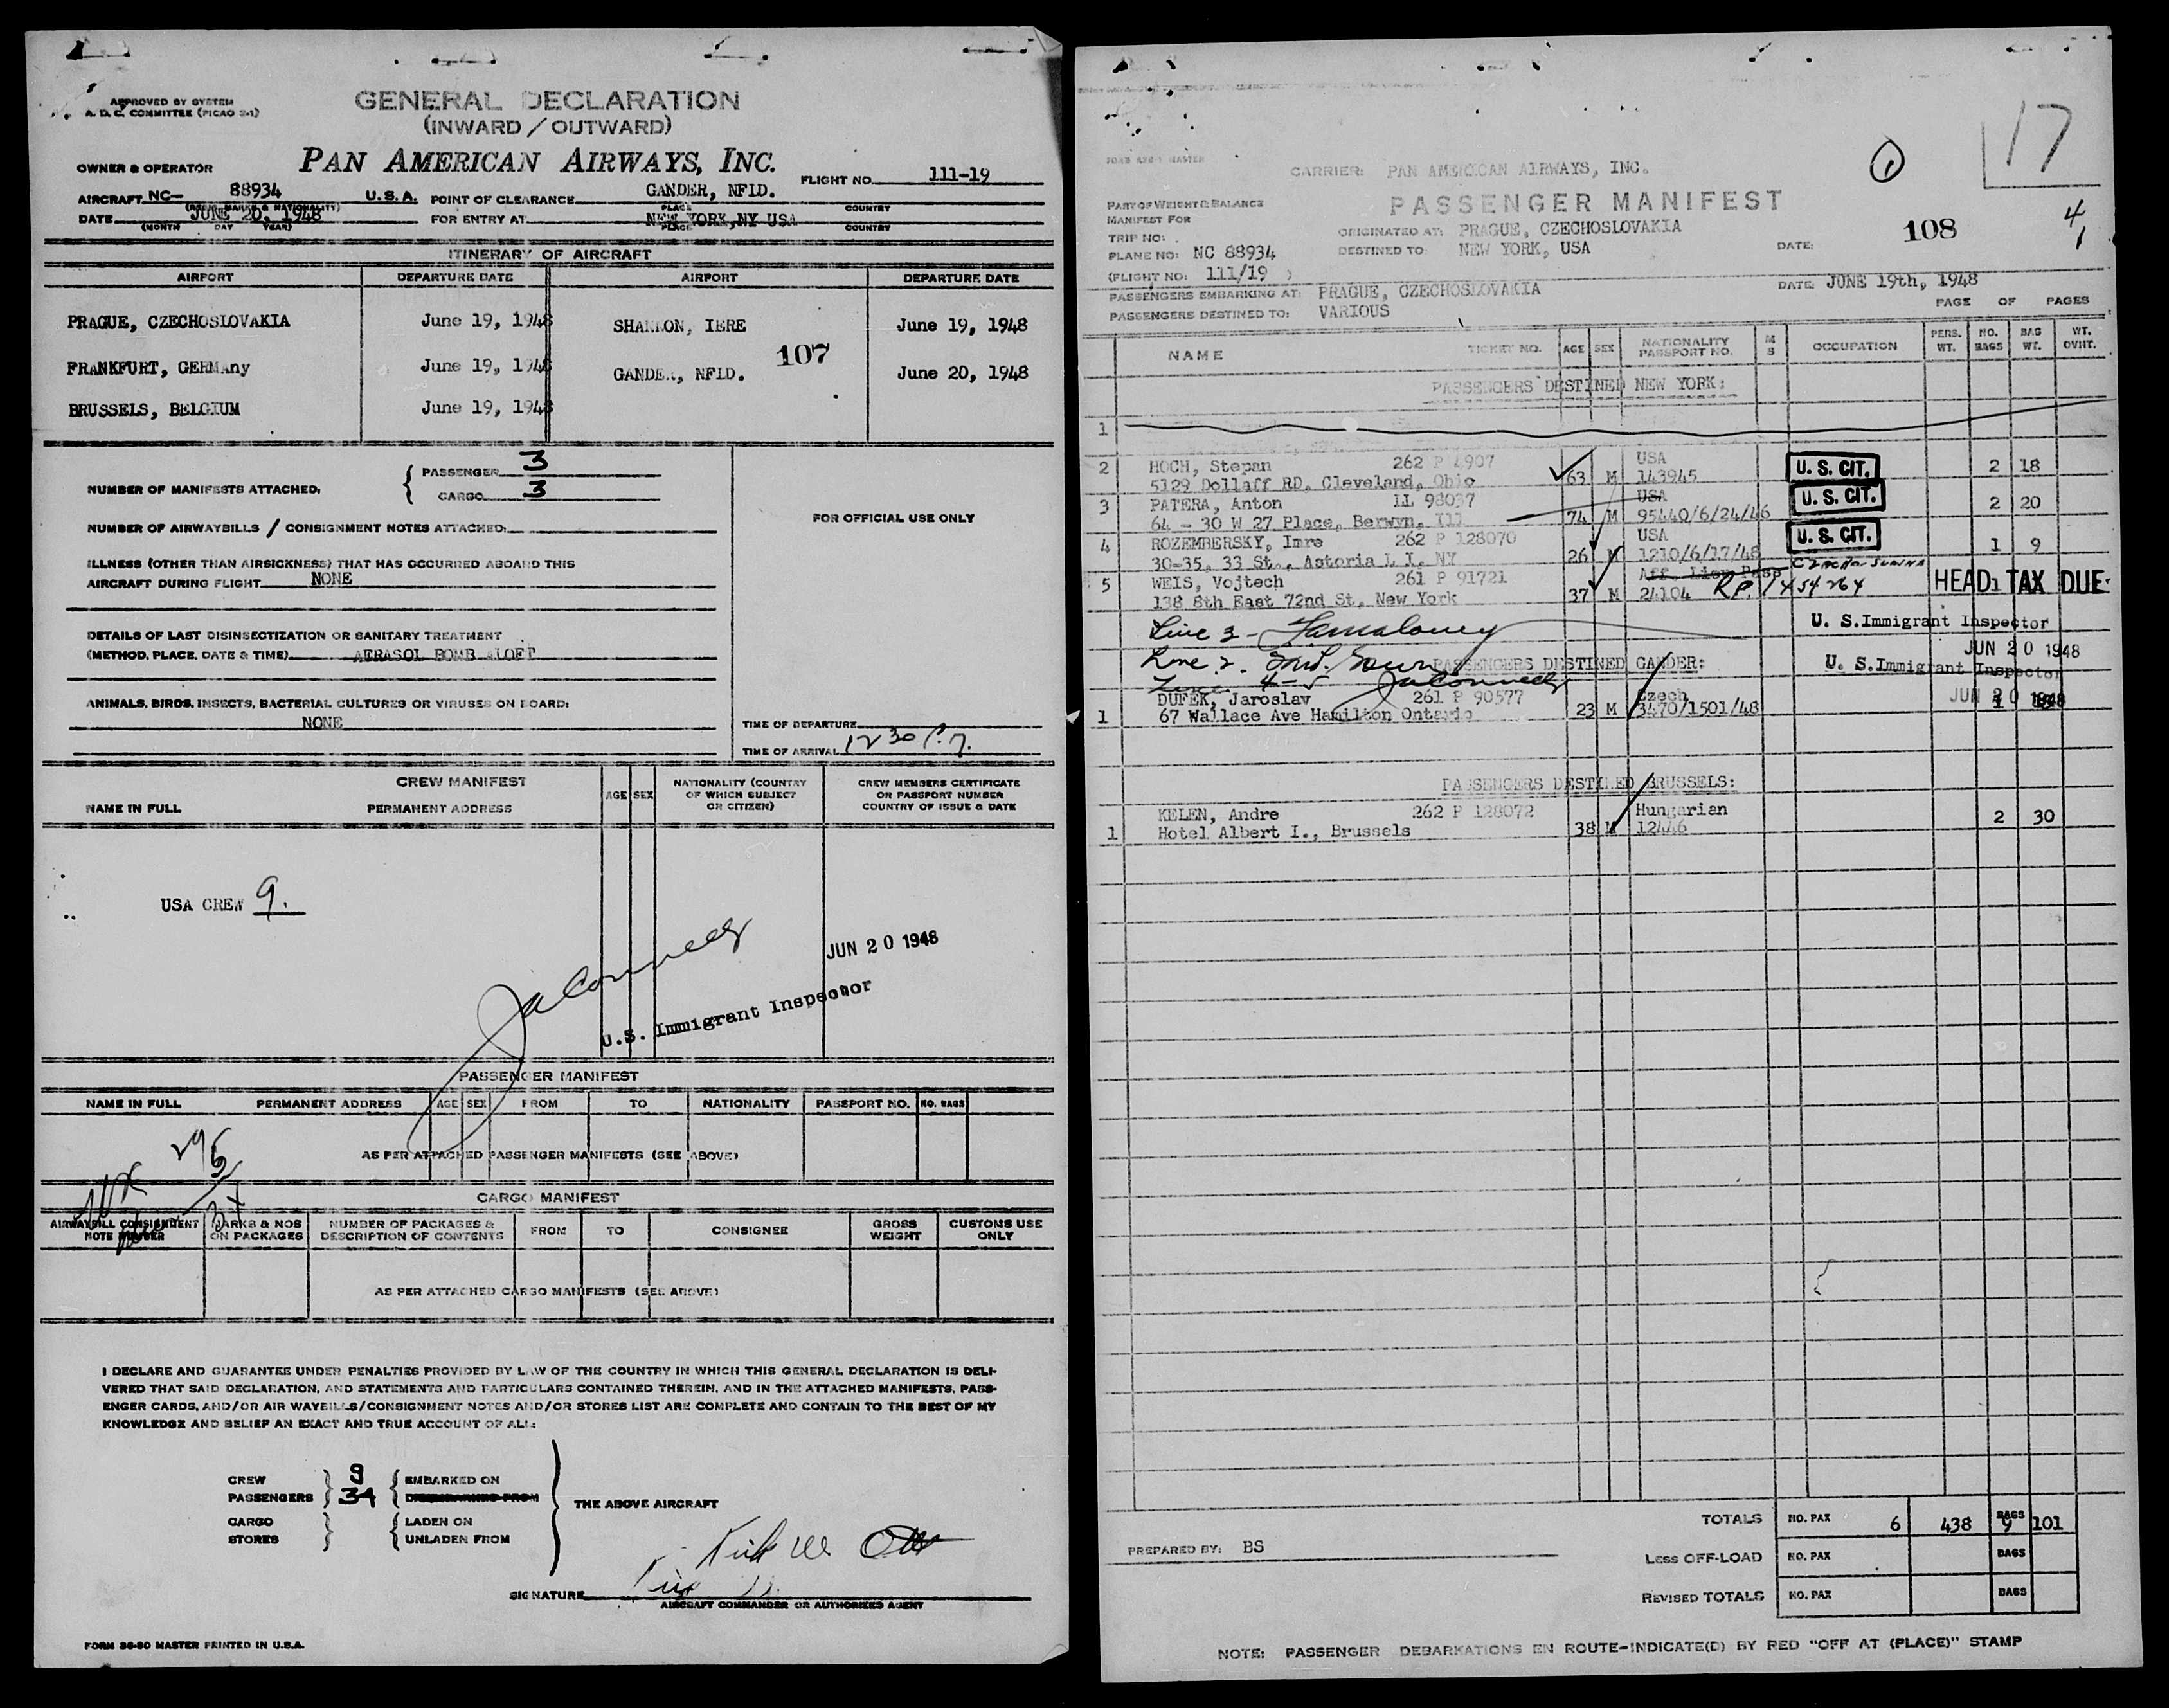 APPROVED BY SYSTEM
A. D. C. COMMITTEE (PICAO 2-1)
GENERAL DECLARATION
(INWARD / OUTWARD)
OWNER & OPERATOR PAN AMERICAN AIRWAYS, INC. FLIGHT NO. 111-19
AIRCRAFT NC- 88934 U.S.A. POINT OF CLEARANCE GANDER, NFLD.
(REG. MARKS & NATIONALITY) PLACE COUNTRY
DATE JUNE 20, 1948 FOR ENTRY AT NEW YORK,NY USA
(MONTH DAY YEAR) PLACE COUNTRY
ITINERARY OF AIRCRAFT
AIRPORT DEPARTURE DATE AIRPORT DEPARTURE DATE
PRAGUE, CZECHOSLOVAKIA June 19, 1948 SHANNON, IERE June 19, 1948
107
FRANKFURT, GERMAny June 19, 1948 GANDER, NFLD. June 20, 1948
BRUSSELS, BELGIUM June 19, 1948
NUMBER OF MANIFESTS ATTACHED: PASSENGER 3
CARGO 3
NUMBER OF AIRWAYBILLS / CONSIGNMENT NOTES ATTACHED:
FOR OFFICIAL USE ONLY
ILLNESS (OTHER THAN AIRSICKNESS) THAT HAS OCCURRED ABOARD THIS
AIRCRAFT DURING FLIGHT NONE
DETAILS OF LAST DISINSECTIZATION OR SANITARY TREATMENT
(METHOD, PLACE, DATE & TIME) AERASOL BOMB ALOFT
ANIMALS, BIRDS, INSECTS, BACTERIAL CULTURES OR VIRUSES ON BOARD:
NONE
TIME OF DEPARTURE
TIME OF ARRIVAL 12 30 P.M.
CREW MANIFEST
NAME IN FULL PERMANENT ADDRESS AGE SEX NATIONALITY (COUNTRY OF WHICH SUBJECT OR CITIZEN) CREW MEMBERS CERTIFICATE OR PASSPORT NUMBER COUNTRY OF ISSUE & DATE
USA CREW 9.
JUN 20 1948
U.S. Immigrant Inspector
PASSENGER MANIFEST
NAME IN FULL PERMANENT ADDRESS AGE SEX FROM TO NATIONALITY PASSPORT NO. NO. BAGS
AS PER ATTACHED PASSENGER MANIFESTS (SEE ABOVE)
CARGO MANIFEST
AIRWAYBILL CONSIGNMENT NOTE NUMBER MARKS & NOS ON PACKAGES NUMBER OF PACKAGES & DESCRIPTION OF CONTENTS FROM TO CONSIGNEE GROSS WEIGHT CUSTOMS USE ONLY
AS PER ATTACHED CARGO MANIFESTS (SEE ABOVE)
I DECLARE AND GUARANTEE UNDER PENALTIES PROVIDED BY LAW OF THE COUNTRY IN WHICH THIS GENERAL DECLARATION IS DELI-
VERED THAT SAID DECLARATION, AND STATEMENTS AND PARTICULARS CONTAINED THEREIN, AND IN THE ATTACHED MANIFESTS, PASS-
ENGER CARDS, AND/OR AIR WAYBILLS/CONSIGNMENT NOTES AND/OR STORES LIST ARE COMPLETE AND CONTAIN TO THE BEST OF MY
KNOWLEDGE AND BELIEF AN EXACT AND TRUE ACCOUNT OF ALL:
CREW 9 EMBARKED ON
PASSENGERS 34 DISEMBARKED FROM
THE ABOVE AIRCRAFT
CARGO LADEN ON
STORES UNLADEN FROM
SIGNATURE
AIRCRAFT COMMANDER OR AUTHORIZED AGENT
FORM 86-80 MASTER PRINTED IN U.S.A.
17
CARRIER: PAN AMERICAN AIRWAYS, INC.
PASSENGER MANIFEST
PART OF WEIGHT & BALANCE
MANIFEST FOR
TRIP NO:
108
4/1
ORIGINATED AT: PRAGUE, CZECHOSLOVAKIA
PLANE NO: NC 88934 DESTINED TO: NEW YORK, USA DATE:
(FLIGHT NO: 111/19 )
PASSENGERS EMBARKING AT: PRAGUE, CZECHOSLOVAKIA DATE: JUNE 19th, 1948
PASSENGERS DESTINED TO: VARIOUS PAGE OF PAGES
NAME TICKET NO. AGE SEX NATIONALITY PASSPORT NO. M S OCCUPATION PERS. WT. NO. BAGS BAG WT. WT. OVHT.
PASSENGERS DESTINED NEW YORK:
1
2 HOCH, Stepan 262 P 4907 USA U. S. CIT. 2 18
5129 Dollaff RD, Cleveland, Ohio 63 M 143945
3 PATERA, Anton 1L 98037 USA U. S. CIT. 2 20
64 - 30 W 27 Place, Berwyn, Ill 74 M 95440/6/24/46
4 ROZEMBERSKY, Imre 262 P 128070 USA U. S. CIT. 1 9
30-35, 33 St., Astoria L I, NY 26 M 1210/6/17/48
5 WEIS, Vojtech 261 P 91721 Aff. Lieu Pass HEAD TAX DUE 1
138 8th East 72nd St, New York 37 M 24104 R.P. 1454264
Line 3 -
U. S.Immigrant Inspector
JUN 20 1948
Line 2.
PASSENGERS DESTINED GANDER:
U. S.Immigrant Inspector
Line 4-5
JUN 20 1948
1 DUFEK, Jaroslav 261 P 90577 Czech
67 Wallace Ave Hamilton Ontario 23 M 3470/1501/48
PASSENGERS DESTINED BRUSSELS:
1 KELEN, Andre 262 P 128072 Hungarian 2 30
Hotel Albert I., Brussels 38 M 12446
TOTALS NO. PAX 6 438 BAGS 9 101
PREPARED BY: BS
Less OFF-LOAD NO. PAX BAGS
REVISED TOTALS NO. PAX BAGS
NOTE: PASSENGER DEBARKATIONS EN ROUTE-INDICATE(D) BY RED "OFF AT (PLACE)" STAMP